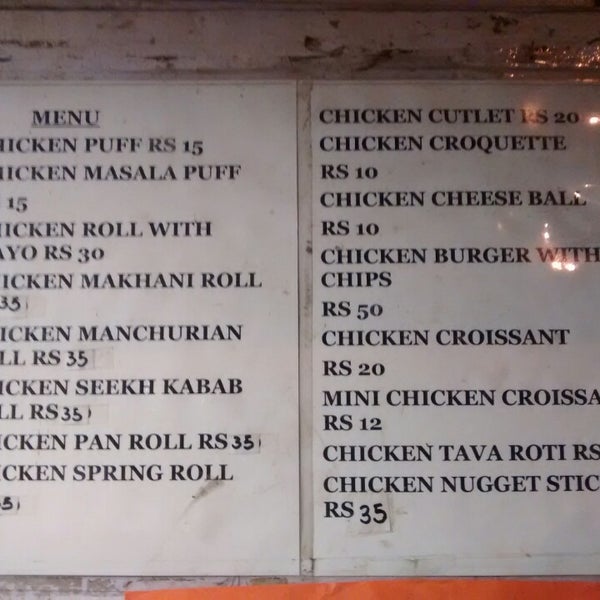 MENU
HICKEN PUFF RS 15
HICKEN MASALA PUFF
15
HICKEN ROLL WITH
AYO RS 30
HICKEN MAKHANI ROLL
35
HICKEN MANCHURIAN
LL RS 35
HICKEN SEEKH KABAB
LL RS 35
ICKEN PAN ROLL RS 35
ICKEN SPRING ROLL
35
CHICKEN CUTLET RS 20
CHICKEN CROQUETTE
RS 10
CHICKEN CHEESE BALL
RS 10
CHICKEN BURGER WITH
CHIPS
RS 50
CHICKEN CROISSANT
RS 20
MINI CHICKEN CROISSA
RS 12
CHICKEN TAVA ROTI RS
CHICKEN NUGGET STIC
RS 35